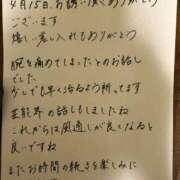 4月15日.お誘い頂くありがとう
ございます
嬉しい差し入れもありがとう
腕を痛めてしまったとのお話し
でした.
少しでも早く治るよう祈ってます
芸能界の話もしましたね
これからは風通しが良くなると
良いですね
またお時間の続きを楽しみに